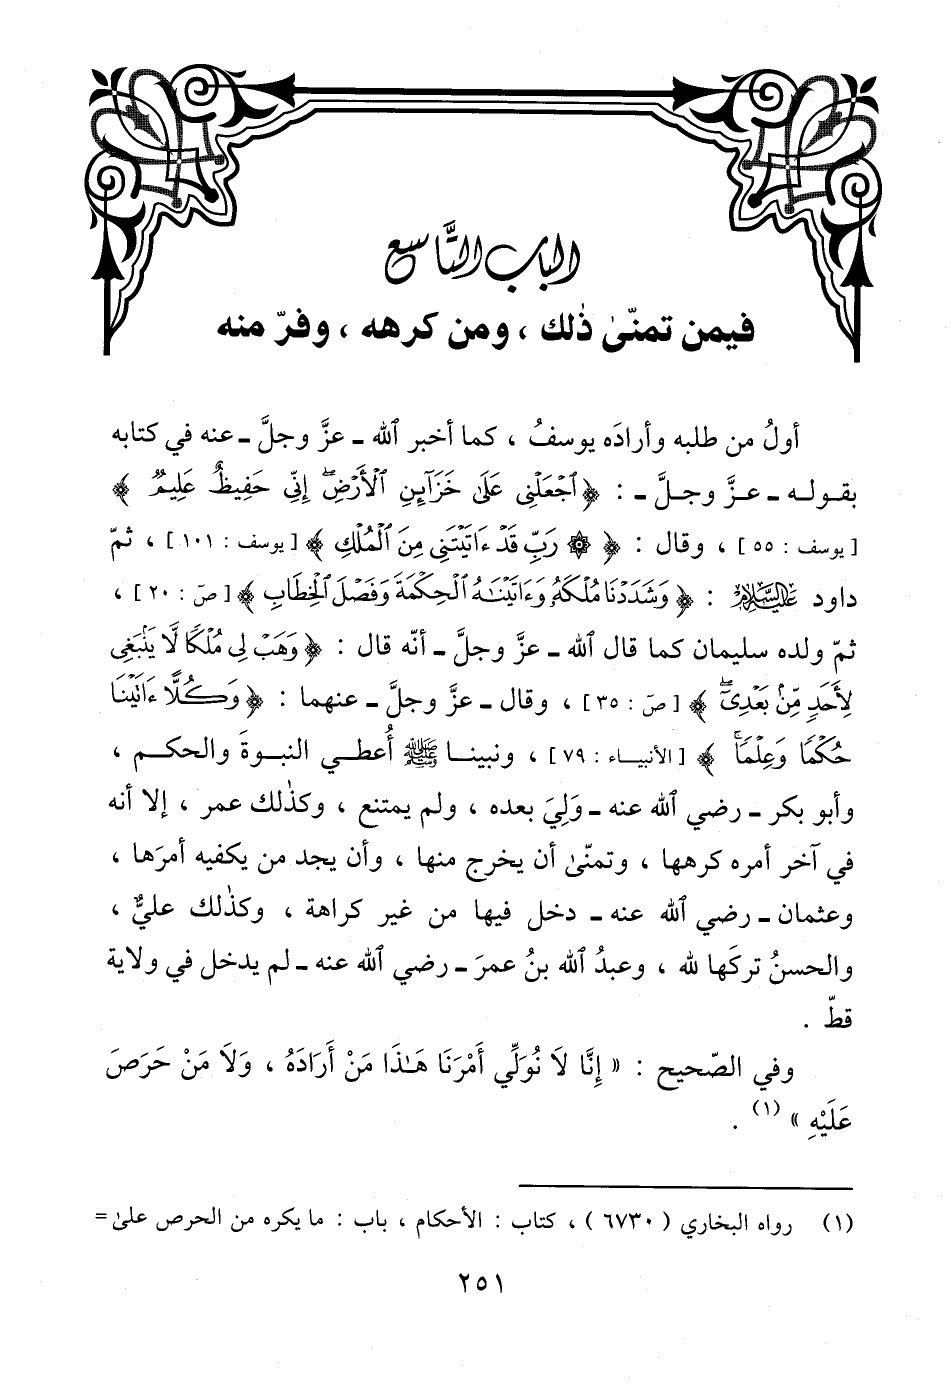 الباب التَّاسع
فيمن تمنّىٰ ذٰلك ، ومن كرهه ، وفرّ منه
أولُ من طلبه وأرادَه يوسفُ ، كما أخبر ٱلله ـ عزَّ وجلَّ ـ عنه في كتابه
بقولـه ـ عـزَّ وجـلَّ ـ : ﴿ ٱجْعَلْنِى عَلَىٰ خَزَآئِنِ ٱلْأَرْضِ ۖ إِنِّى حَفِيظٌ عَلِيمٌ ﴾
[ يوسف : ٥٥ ] ، وقال : ﴿ ۞ رَبِّ قَدْ ءَاتَيْتَنِى مِنَ ٱلْمُلْكِ ﴾ [ يوسف : ١٠١ ] ، ثمّ
داود عَلَيْهِ السَّلَامُ : ﴿ وَشَدَدْنَا مُلْكَهُۥ وَءَاتَيْنَٰهُ ٱلْحِكْمَةَ وَفَصْلَ ٱلْخِطَابِ ﴾ [ صۤ : ٢٠ ] ،
ثمّ ولده سليمان كما قال ٱلله ـ عزَّ وجلَّ ـ أنّه قال : ﴿ وَهَبْ لِى مُلْكًا لَّا يَنۢبَغِى
لِأَحَدٍ مِّنۢ بَعْدِىٓ ۖ ﴾ [ صۤ : ٣٥ ] ، وقال ـ عزَّ وجلَّ ـ عنهما : ﴿ وَكُلًّا ءَاتَيْنَا
حُكْمًا وَعِلْمًا ۚ ﴾ [ الأنبيـاء : ٧٩ ] ، ونبينـا ﷺ أُعطـي النبـوةَ والحكـم ،
وأبو بكر ـ رضي ٱلله عنه ـ وَلِيَ بعده ، ولم يمتنع ، وكذٰلك عمر ، إلا أنه
في آخر أمره كرهها ، وتمنّىٰ أن يخرج منها ، وأن يجد من يكفيه أمرَها ،
وعثمان ـ رضي ٱلله عنه ـ دخل فيها من غير كراهة ، وكذٰلك عليٌّ ،
والحسنُ تركَها لله ، وعبدُ ٱلله بنُ عمرَ ـ رضي ٱلله عنه ـ لم يدخل في ولاية
قطّ .
وفي الصّحيح : « إِنَّا لَا نُوَلِّي أَمْرَنَا هَـٰذَا مَنْ أَرَادَهُ ، وَلَا مَنْ حَرَصَ
عَلَيْهِ » (١) .
(١) رواه البخاري ( ٦٧٣٠ ) ، كتاب : الأحكام ، باب : ما يكره من الحرص علىٰ =
٢٥١